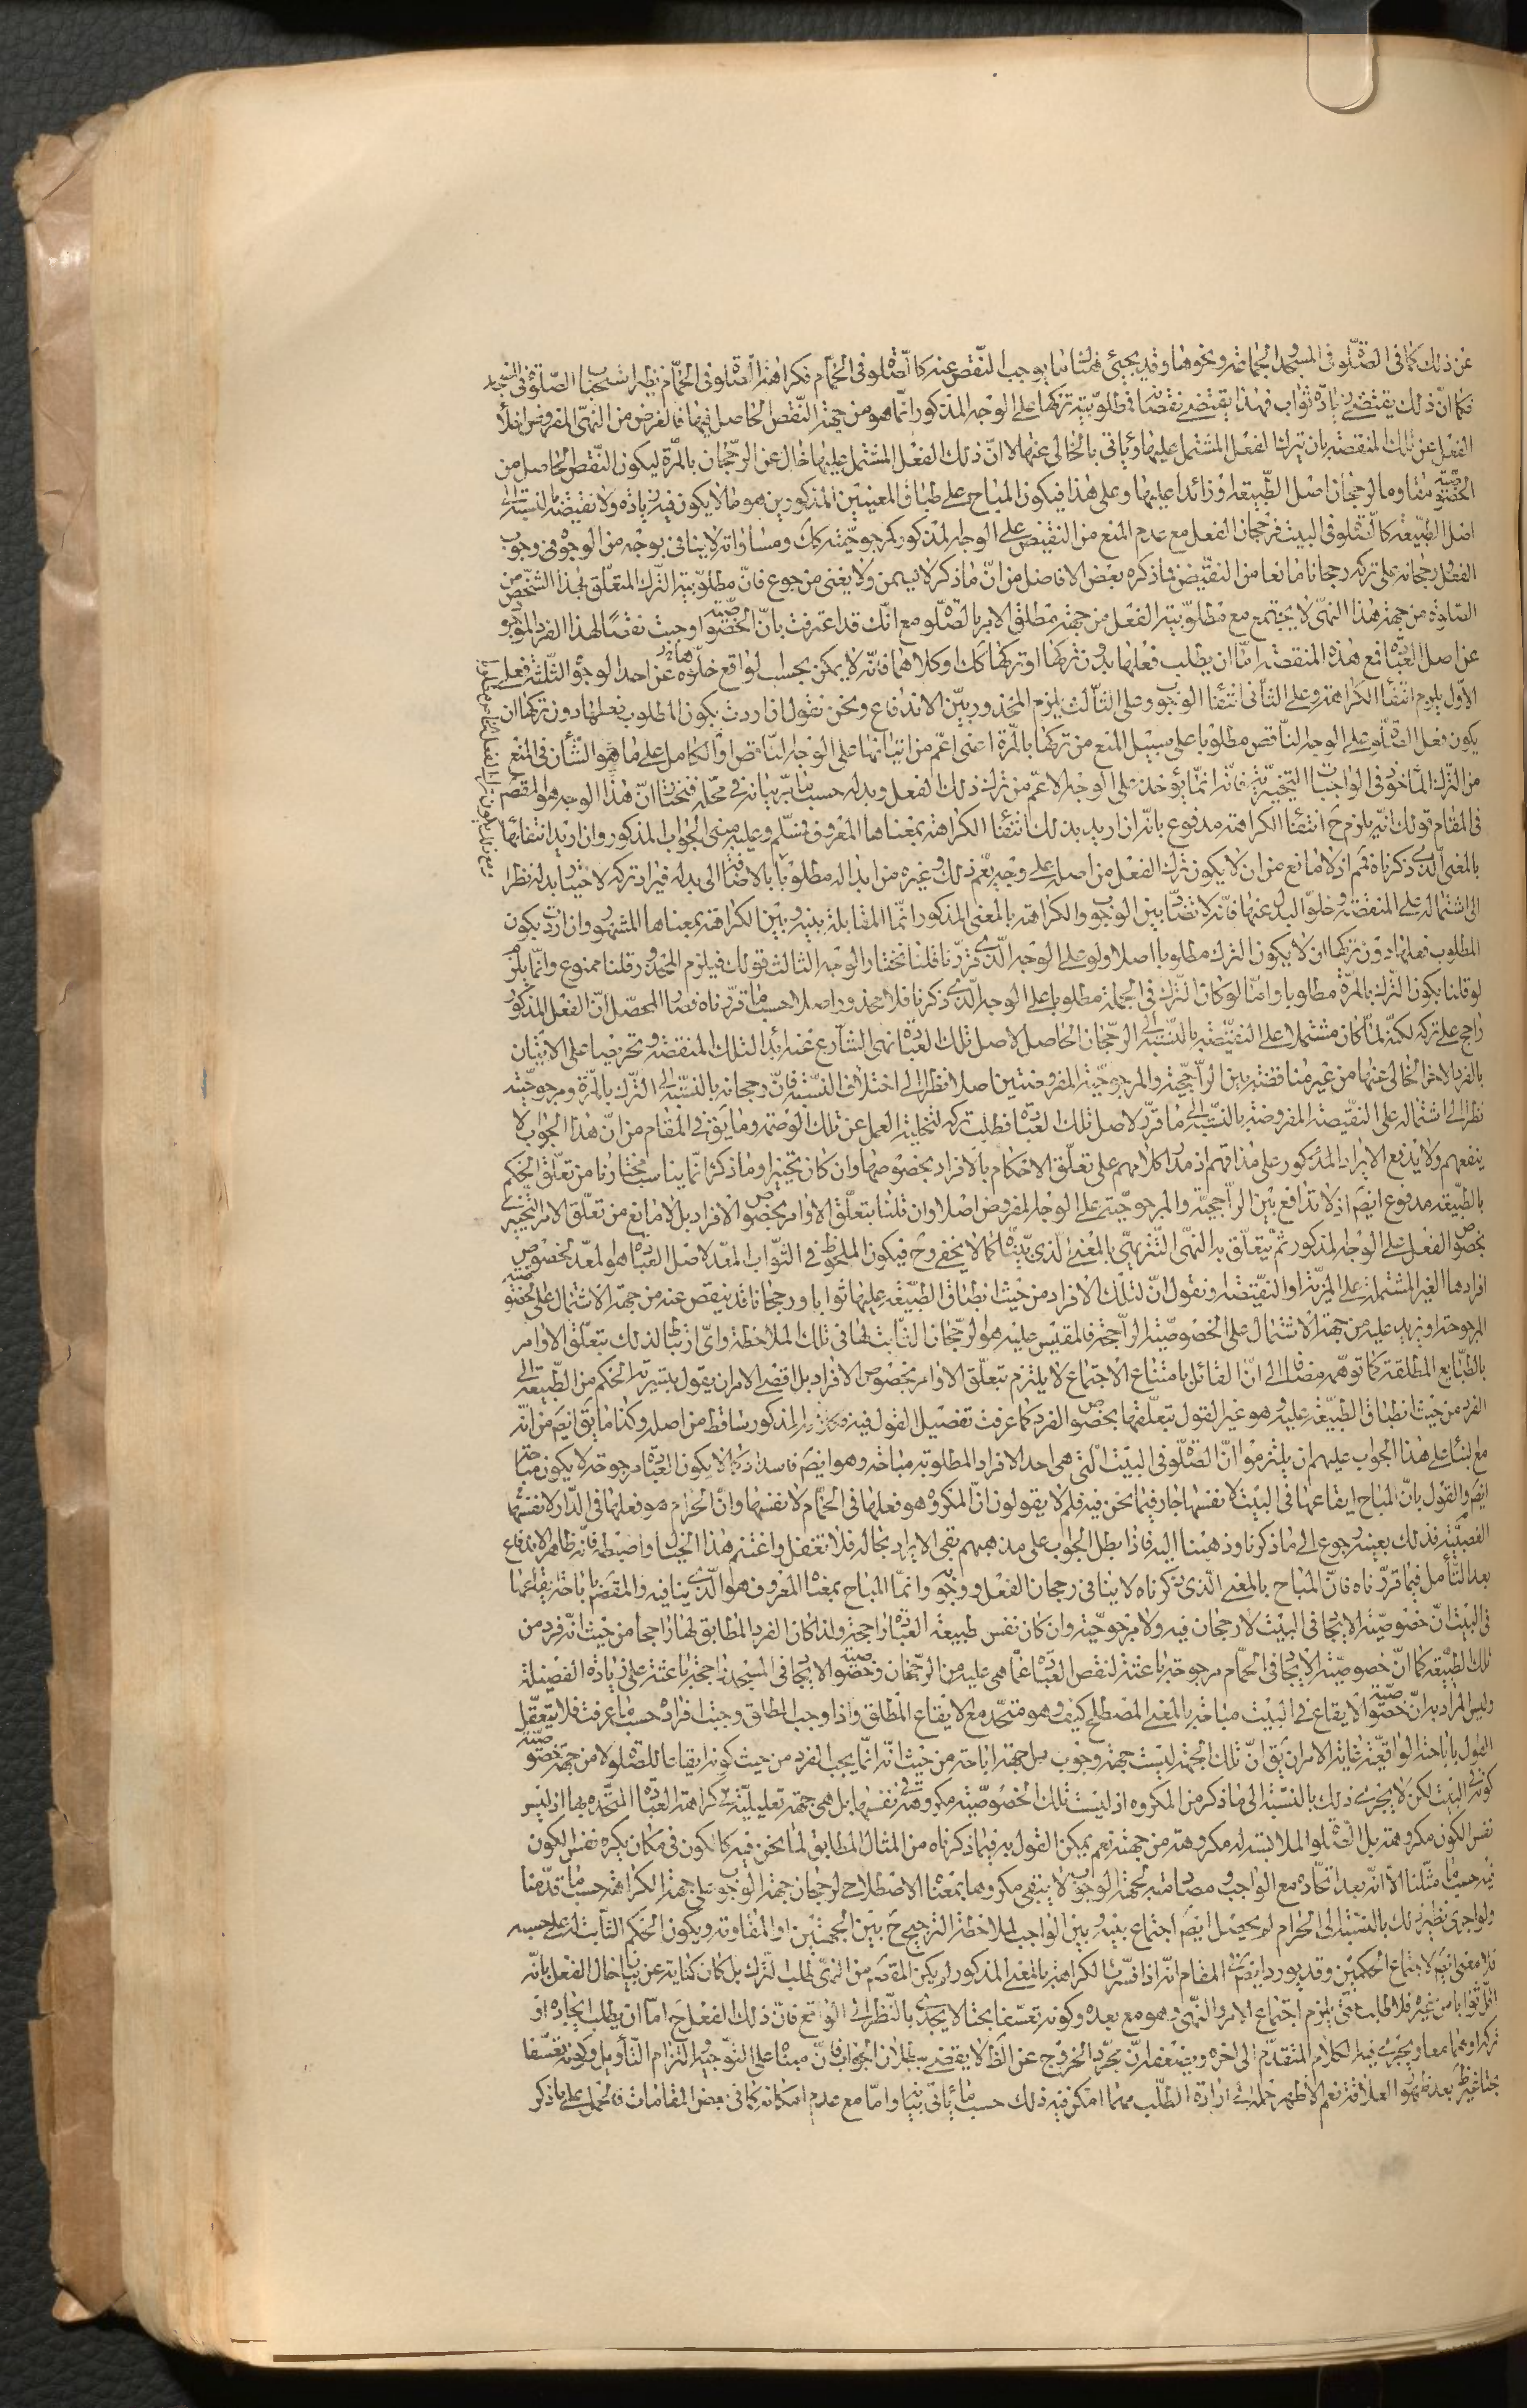 عن ذلك كما فى الصّلوة فى المسجد والجماعة ونحوهما وقد يجيئ هناك ما يوجب النّقص عنه كالصّلوة فى الحمّام فكراهة الصّلوة فى الحمّام نظير استحباب الصّلوة فى المسجد
فكما انّ ذلك يقتضى زيادة ثواب فهذا يقتضى نقصا فمطلوبيّة تركها على الوجه المذكور انّما هو من جهة النّقص الحاصل فيها فالغرض من النّهى المفروض
الفعل عن تلك المنقصة بان يترك الفعل المشتمل عليها ويأتى بالخالى عنها لا انّ ذلك الفعل المشتمل عليها خال عن الرّجحان بالمرّة ليكون النّقص الحاصل من
الخصوصيّة مقاوما لرجحان اصل الطّبيعة او زائدا عليها وعلى هذا فيكون المباح على طباق المعنيين المذكورين هو ما لا يكون فيه زيادة ولا نقيصة بالنسبة الى
اصل الطّبيعة كالصّلوة فى البيت فرجحان الفعل مع عدم المنع من النّقيض على الوجه المذكور كمرجوحيّته كك ومساواته لا ينافى بوجه من الوجوه وجوب
الفعل ورجحانه على تركه رجحانا مانعا من النّقيض فما ذكره بعض الافاضل من انّ ما ذكر لا يسمن ولا يغنى من جوع فانّ مطلوبيّة التّرك المتعلّق بهذا الشّخص من
الصّلوة من جهة هذا النّهى لا يجتمع مع مطلوبيّة الفعل من جهة مطلق الامر بالصّلوة مع انّك قد اعترفت بانّ الخصوصيّة اوجبت نقصا لهذا الفرد الموجود
عن اصل العبادة فمع هذه المنقصة امّا ان يطلب فعلها بدون تركها او تركها كك او كلاهما فانّه لا يمكن بحسب الواقع خلوّه عن احد الوجوه الثّلثة فعلى
الاوّل يلزم انتفاء الكراهة وعلى الثّانى انتفاء الوجوب وعلى الثّالث يلزم المحذور بيّن الاندفاع ونحن نقول ان اردت بكون المطلوب فعلها دون تركها ان
يكون فعل الصّلوة على الوجه النّاقص مطلوبا على سبيل المنع من تركها بالمرّة اعنى اعمّ من اتيانها على الوجه النّاقص او الكامل على ما هو الشّأن فى المنع
من التّرك المأخوذ فى الواجبات التخييريّة فانّه انّما يؤخذ على الوجه الاعمّ من ترك ذلك الفعل وبدله حسب ما مرّ بيانه فى محلّه فنختار انّ هذا الوجه هو المقصود
فى المقام قولك انّه يلزم ح انتفاء الكراهة مدفوع بانّه ان اريد بذلك انتفاء الكراهة بمعناها المعروف فمسلّم وعليه مبنى الجواب المذكور وان اريد انتفاءها
بالمعنى الّذى ذكرناه فمم اذ لا مانع من ان لا يكون ترك الفعل من اصله على وجه يعمّ ذلك وغيره من ابداله مطلوبا بالاضافة الى بدله فيراد تركه لاختيار بدله نظرا
الى اشتماله على المنقصة وخلوّ البدل عنها فانّه لا تضادّ بين الوجوب والكراهة بالمعنى المذكور انّما المقابلة بينه وبين الكراهة بمعناها المشهور وان اردت بكون
المطلوب فعلها دون تركها ان لا يكون التّرك مطلوبا اصلا ولو على الوجه الّذى قرّرنا قلنا نختار الوجه الثالث قولك فيلزم المحذور قلنا ممنوع وانّما يلزم
لو قلنا بكون التّرك بالمرّة مطلوبا وامّا لو كان التّرك فى الجملة مطلوبا على الوجه الّذى ذكرنا فلا محذور اصلا حسب ما قرّرناه فصار المحصّل انّ الفعل المذكور
راجح على تركه لكنّه لمّا كان مشتملا على النّقيصة بالنّسبة الى الرّجحان الحاصل لاصل تلك العبادة نهى الشّارع عنه ابداء لتلك المنقصة وتحريصا على الاتيان
بالفرد الاخر الخالى عنها من غير مناقضة بين الرّاجحيّة والمرجوحيّة المفروضتين اصلا نظرا الى اختلاف النّسبة فانّ رجحانه بالنّسبة الى التّرك بالمرّة ومرجوحيّته
نظرا الى اشتماله على النّقيصة المفروضة بالنّسبة الى ما قرّر لاصل تلك العبادة فطلب تركه لتخلية العمل عن تلك الوصمة وما يق فى المقام من انّ هذا الجواب لا
ينفعهم ولا يدفع الايراد المذكور على مذاقهم اذ مدار كلامهم على تعلّق الاحكام بالافراد بخصوصها وان كان تخييرا وما ذكر انّما يناسب مختارنا من تعلّق الحكم
بالطّبيعة مدفوع ايضا اذ لا تدافع بين الرّاجحيّة والمرجوحيّة على الوجه المفروض اصلا وان قلنا بتعلّق الاوامر بخصوص الافراد بل لا مانع من تعلّق الامر التّخييرى
بخصوص الفعل على الوجه المذكور ثمّ يتعلّق به النّهى التّنزيهىّ بالمعنى الّذى بيّنّاه كما لا يخفى وح فيكون الملحوظ فى الثّواب المقدّر لاصل العبادة هو المعدّ لخصوص
افرادها الغير المشتملة على المزيّة او النّقيصة ونقول انّ لتلك الافراد من حيث انطباق الطّبيعة عليها ثوابا ورجحانا قد ينقص عنه من جهة الاشتمال على الخصوصيّة
المرجوحة او يزيد عليه من جهة الاشتمال على الخصوصيّة الرّاجحة فالمقيس عليه هو الرّجحان الثّابت لها فى تلك الملاحظة واىّ ارتباط لذلك بتعلّق الاوامر
بالطّبايع المطلقة كما توهّمه مضافا الى انّ القائل بامتناع الاجتماع لا يلتزم بتعلّق الاوامر بخصوص الافراد بل اقصى الامر ان يقول بسراية الحكم من الطّبيعة الى
الفرد من حيث انطباق الطّبيعة عليه وهو غير القول بتعلّقها بخصوص الفرد كما عرفت تفصيل القول فيه فالايراد المذكور ساقط من اصله وكذا ما يق ايضا من انّه
بناء على هذا الجواب عليهم ان يلتزموا انّ الصّلوة فى البيت الّتى هى احد الافراد المطلوبة مباحة وهو ايضا فاسد اذ كما لا يكون العبادة مرجوحة لا يكون مباحة
ايضا والقول بانّ المباح ايقاعها فى البيت لا نفسها جار فيما نحن فيه فلم لا يقولون انّ المكروه هو فعلها فى الحمّام لا نفسها وانّ الحرام هو فعلها فى الدّار لا نفسها
الغصبيّة فذلك بعينه رجوع الى ما ذكرنا وذهبنا اليه فاذا بطل الجواب على مذهبهم بقى الايراد بحاله فلا تغفل واغتنم هذا الجواب واضبطه فانّه ظاهر الاندفاع
بعد التّأمل فيما قرّرناه فانّ المباح بالمعنى الّذى ذكرناه لا ينافى رجحان الفعل ووجوبه وانّما المباح بمعناه المعروف هو الّذى ينافيه والمقصود باباحة ايقاعها
فى البيت انّ خصوصيّة الايجاد فى البيت لا رجحان فيه ولا مرجوحيّة وان كان نفس طبيعة العبادة راجحة ولذا كان الفرد المطابق لها راجحا من حيث انّه فرد من
تلك الطّبيعة كما انّ خصوصيّة الايجاد فى الحمّام مرجوحة باعثة لنقص العبادة عمّا هى عليه من الرّجحان وخصوصيّة الايجاد فى المسجد راجحة باعثة على زيادة الفضيلة
وليس المراد به انّ خصوصيّة الايقاع فى البيت مباحة بالمعنى المصطلح كيف وهو متّحد مع الايقاع المطلق واذا وجب المطلق وجبت افراده حسب ما عرفت فلا يتعقّل
القول باباحته الواقعيّة غاية الامر ان يق انّ تلك الجهة ليست جهة وجوب بل جهة اباحة من حيث انّه انّما يجب الفرد من حيث كونه ايقاعا للصّلوة لا من جهة خصوصيّة
كونه فى البيت لكن لا يجرى ذلك بالنّسبة الى ما ذكر من المكروه اذ ليست تلك الخصوصيّة مكروهة فى نفسها بل هى جهة تعليليّة فى كراهة العبادة المتّحدة بها اذ ليس
نفس الكون مكروهة بل الصّلوة الملابسة له مكروهة من جهته نعم يمكن القول به فيما ذكرناه من المثال المطابق لما نحن فيه كالكون فى مكان يكره نفس الكون
فيه حسب ما مثّلنا الّا انّه بعد اتّحاده مع الواجب ومصادمته لجهة الوجوب لا يبقى مكروها بمعناه الاصطلاحى لرجحان جهة الوجوب على جهة الكراهة حسب ما قدّمنا
ولو اجرى نظير ذلك بالنّسبة الى الحرام لم يحصل ايضا اجتماع بينه وبين الواجب لملاحظة التّرجيح ح بين الجهتين او المقاومة ويكون الحكم الثّابت له على حسبه
فلا معنى ايضا لاجتماع الحكمين وقد يورد ايضا فى المقام انّه اذا فسّر الكراهة بالمعنى المذكور لم يكن المقصود من النّهى طلب التّرك بل كان كناية عن بيان حال الفعل بانّه
اقلّ ثوابا من غيره فلا طلب حتّى يلزم اجتماع الامر والنّهى وهو مع بعده وكونه تعسّفا بحتا لا يجدى بالنّظر الى الواقع فانّ ذلك الفعل ح امّا ان يطلب ايجاده او
تركه او هما معا ويجرى فيه الكلام المتقدّم الى اخره ويضعّفه انّ مجرّد الخروج عن الظّ لا يقضى ببطلان الجواب فانّ مبناه على التّوجيه والتزام التّأويل وكونه تعسّفا
بحتا غير ظ بعد ظهور العلاقة نعم الاظهر حمله على ارادة الطّلب مهما امكن فيه ذلك حسب ما يأتى بيانه وامّا مع عدم امكانه كما فى بعض المقامات فالحمل على ما ذكر